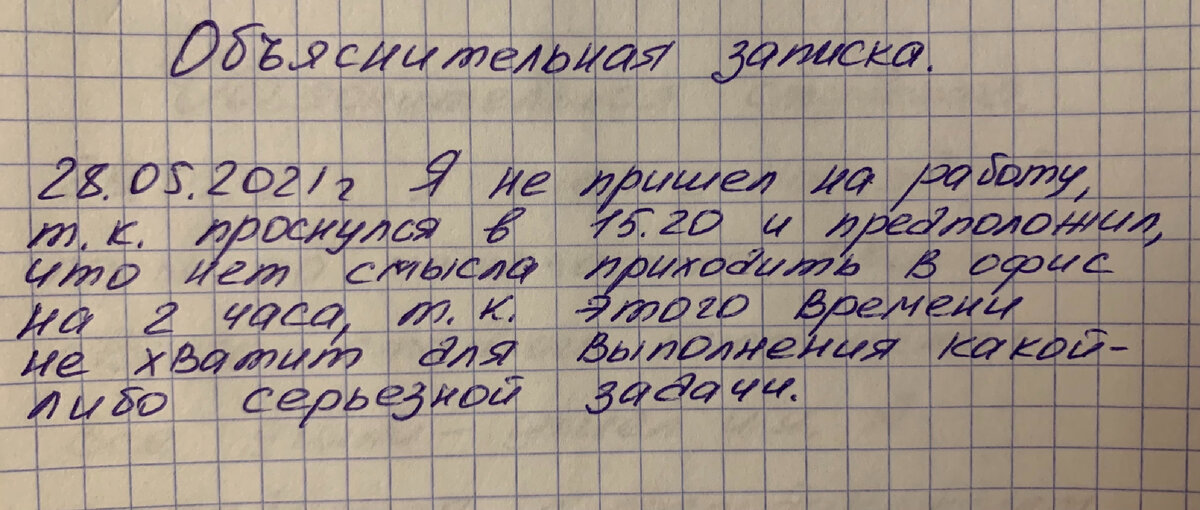 Объяснительная записка.
28.05.2021г Я не пришел на работу,
т.к. проснулся в 15.20 и предположил,
что нет смысла приходить в офис
на 2 часа, т.к. этого времени
не хватит для выполнения какой-
либо серьезной задачи.